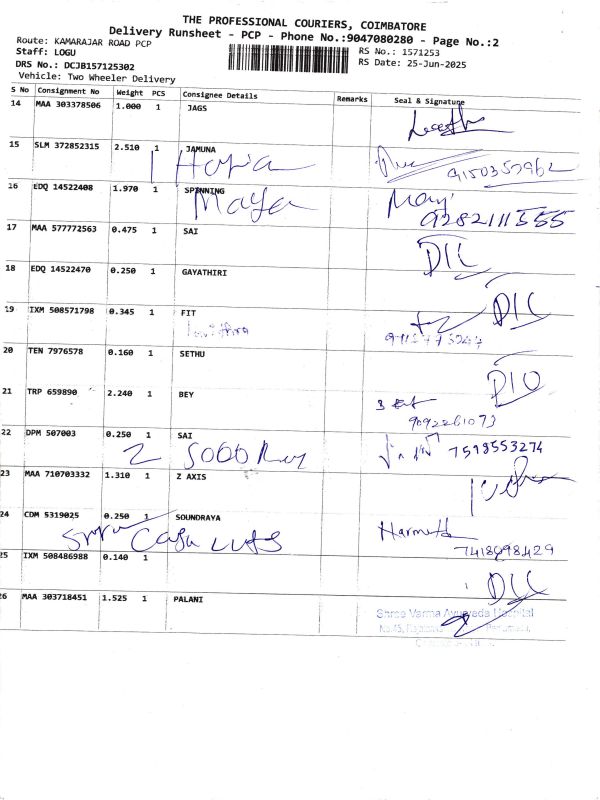 THE PROFESSIONAL COURIERS, COIMBATORE
Delivery Runsheet - PCP - Phone No.:9047080280 - Page No.:2
Route: KAMARAJAR ROAD PCP
RS No.: 1571253
Staff: LOGU
RS Date: 25-Jun-2025
DRS No.: DCJB157125302
Vehicle: Two Wheeler Delivery
S No Consignment No Weight PCS Consignee Details Remarks Seal & Signature
14 MAA 303378506 1.000 1 JAGS
15 SLM 372852315 2.510 1 JAMUNA
9150353962
16 EDQ 14522408 1.970 1 SPINNING
Maya
9282111555
17 MAA 577772563 0.475 1 SAI
18 EDQ 14522470 0.250 1 GAYATHIRI
19 IXM 508571798 0.345 1 FIT
20 TEN 7976578 0.160 1 SETHU
21 TRP 659890 2.240 1 BEY
9092261073
22 DPM 507003 0.250 1 SAI
7598553274
23 MAA 710703332 1.310 1 Z AXIS
24 CDM 5319025 0.250 1 SOUNDRAYA
7418698429
25 IXM 508486988 0.140 1
26 MAA 303718451 1.525 1 PALANI
Shree Varma Ayurveda Hospital